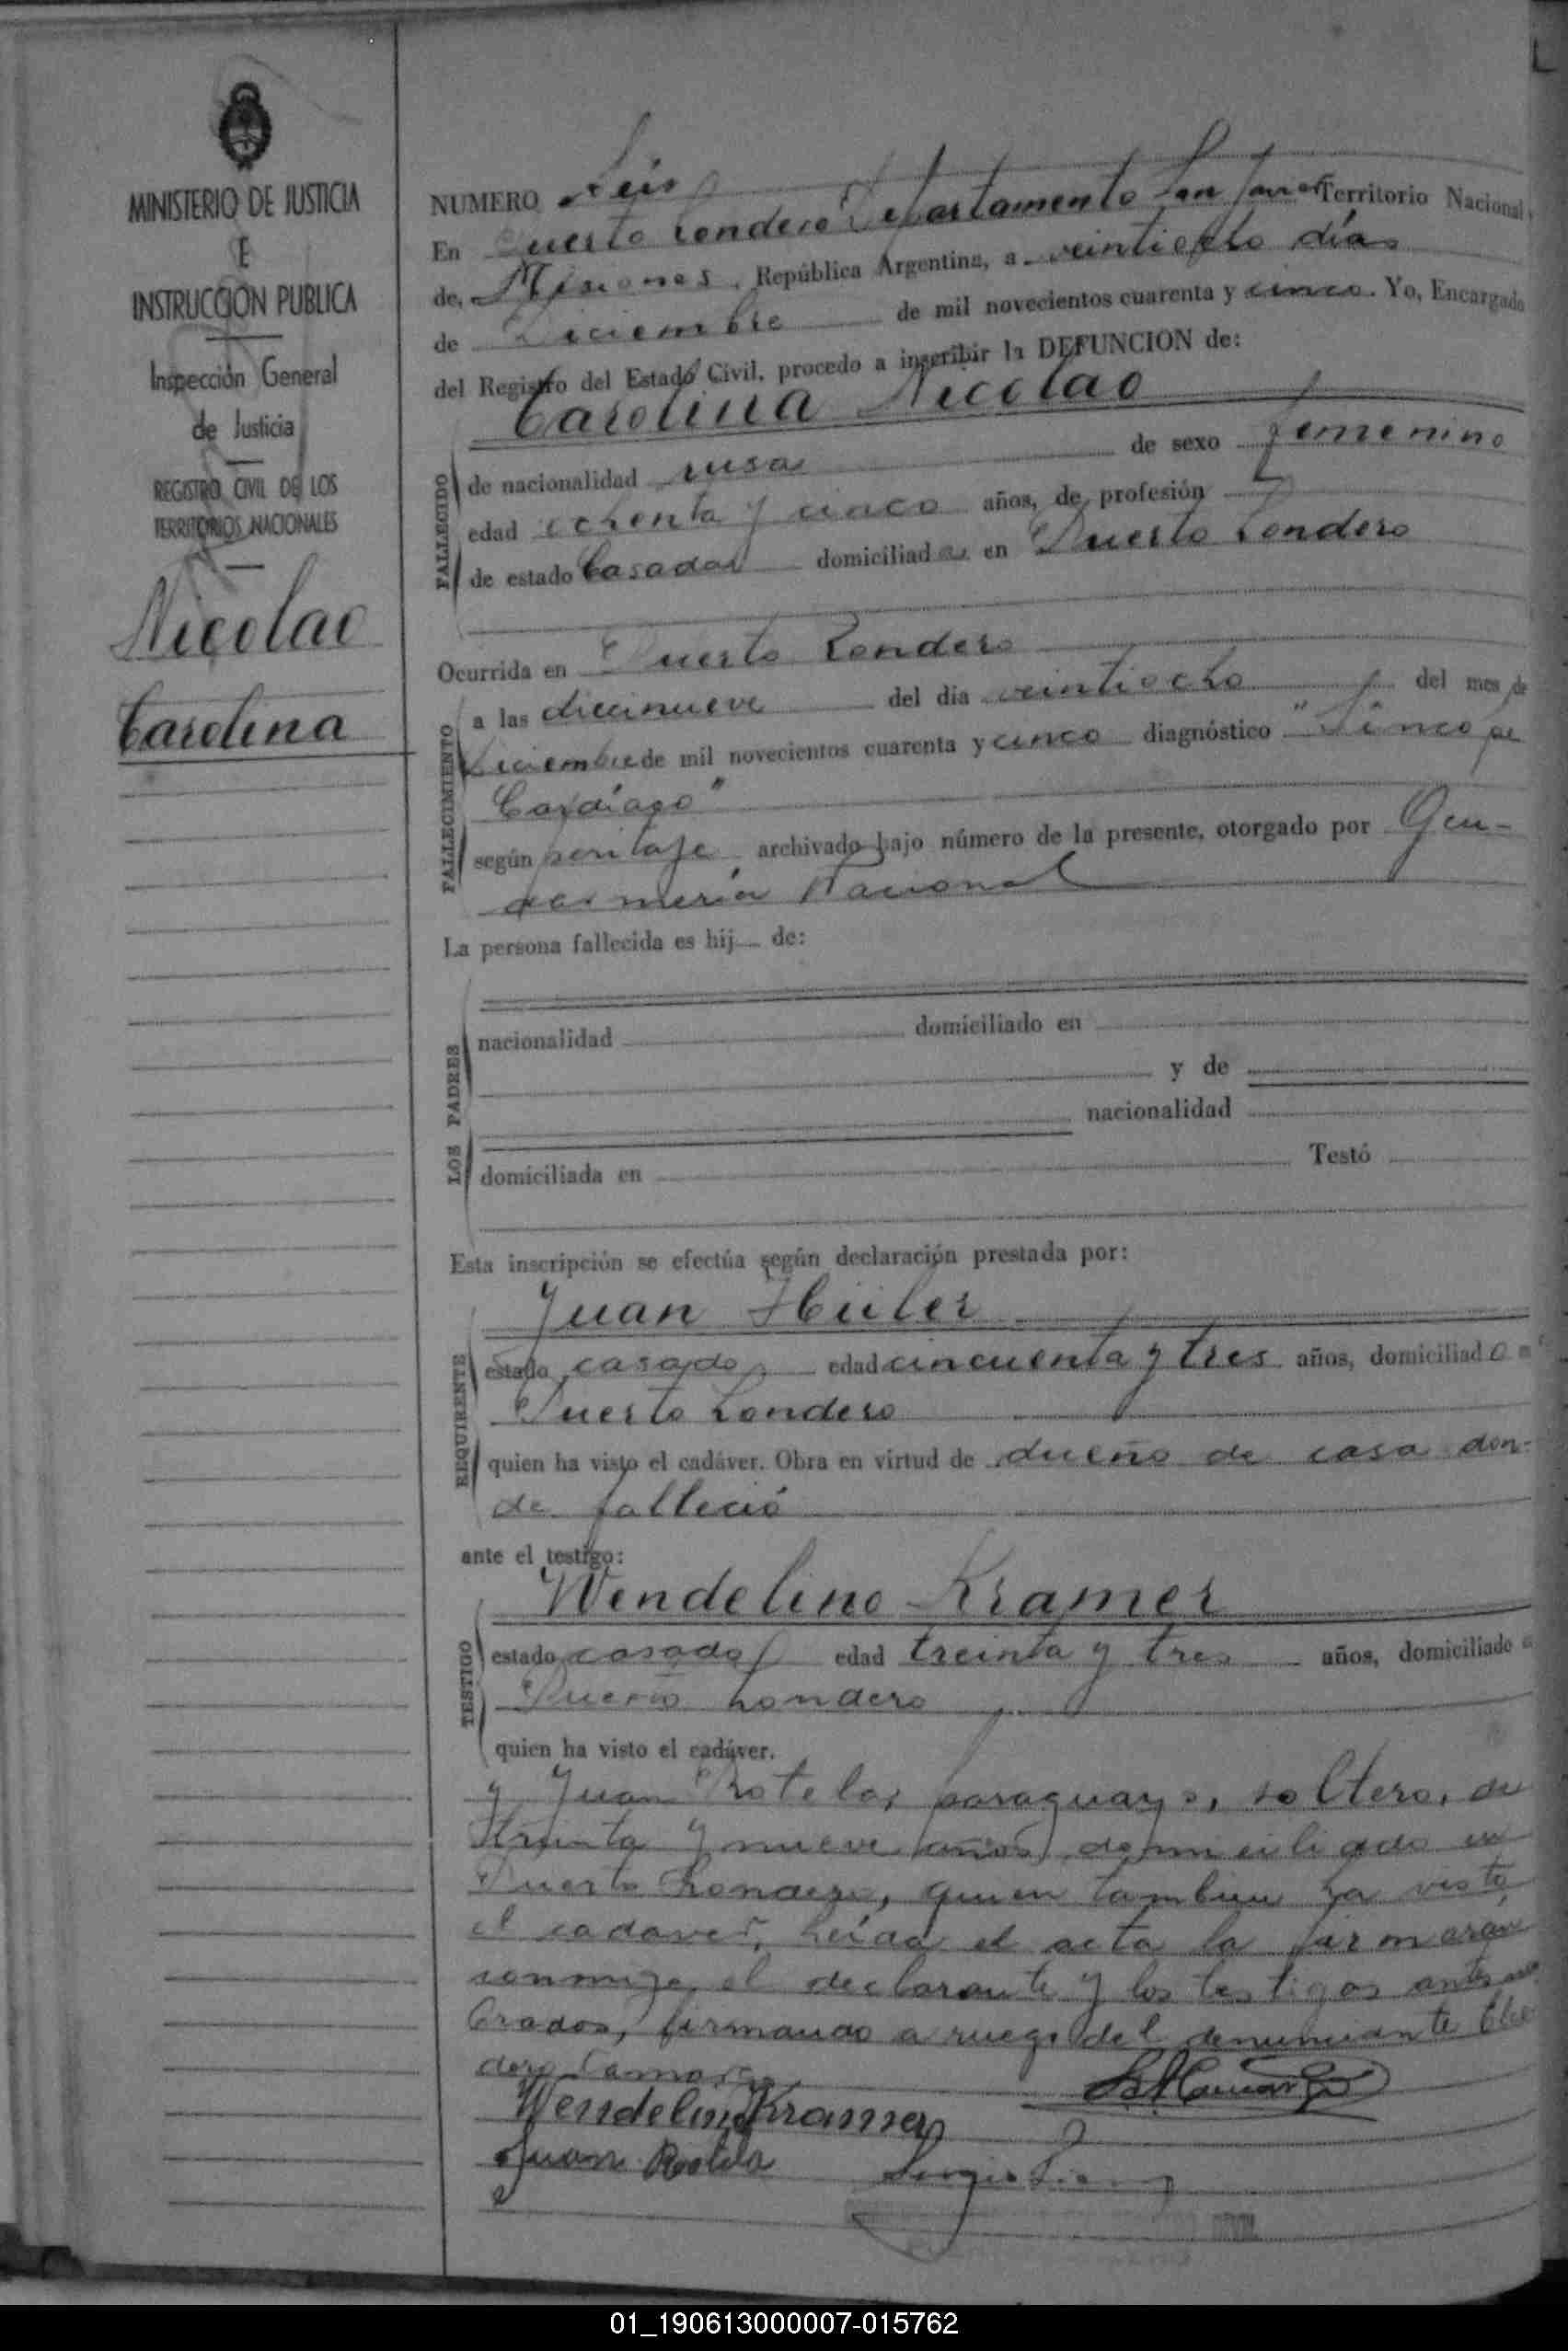 MINISTERIO DE JUSTICIA
E
INSTRUCCION PUBLICA
Inspección General
de Justicia
REGISTRO CIVIL DE LOS
TERRITORIOS NACIONALES
Nicolao
Carolina
NUMERO Seis
En Puerto Londero Departamento San Javier Territorio Nacional
de, Misiones, República Argentina, a veintiocho días
de Diciembre de mil novecientos cuarenta y cinco. Yo, Encargado
del Registro del Estado Civil, procedo a inscribir la DEFUNCION de:
Carolina Nicolao
FALLECIDO
de nacionalidad rusa de sexo femenino
edad ochenta y cinco años, de profesión
de estado Casada domiciliada en Puerto Londero
Ocurrida en Puerto Londero
FALLECIMIENTO
a las diecinueve del día veintiocho del mes de
Diciembre de mil novecientos cuarenta y cinco diagnóstico "Sincope
Cardíaco"
según peritaje archivado bajo número de la presente, otorgado por Gen-
darmería Nacional
La persona fallecida es hij de:
LOS PADRES
nacionalidad domiciliado en
y de
nacionalidad
domiciliada en Testó
Esta inscripción se efectúa según declaración prestada por:
Juan
REQUIRENTE
estado casado edad cincuenta y tres años, domiciliado
Puerto Londero
quien ha visto el cadáver. Obra en virtud de dueño de casa don-
de falleció
ante el testigo:
Wendelino Kramer
TESTIGO
estado casado edad treinta y tres años, domiciliado
Puerto Londero
quien ha visto el cadáver.
y Juan Rotela, paraguayo, soltero, de
treinta y nueve años, domiciliado en
Puerto Londero, quien tambien ha visto
el cadaver, Leída el acta la firmarán
conmigo el declarante y los testigos
brados, firmando a ruego del denunciante
doro Camargo
Wendelino Kramer
Juan Rotela
01_190613000007-015762